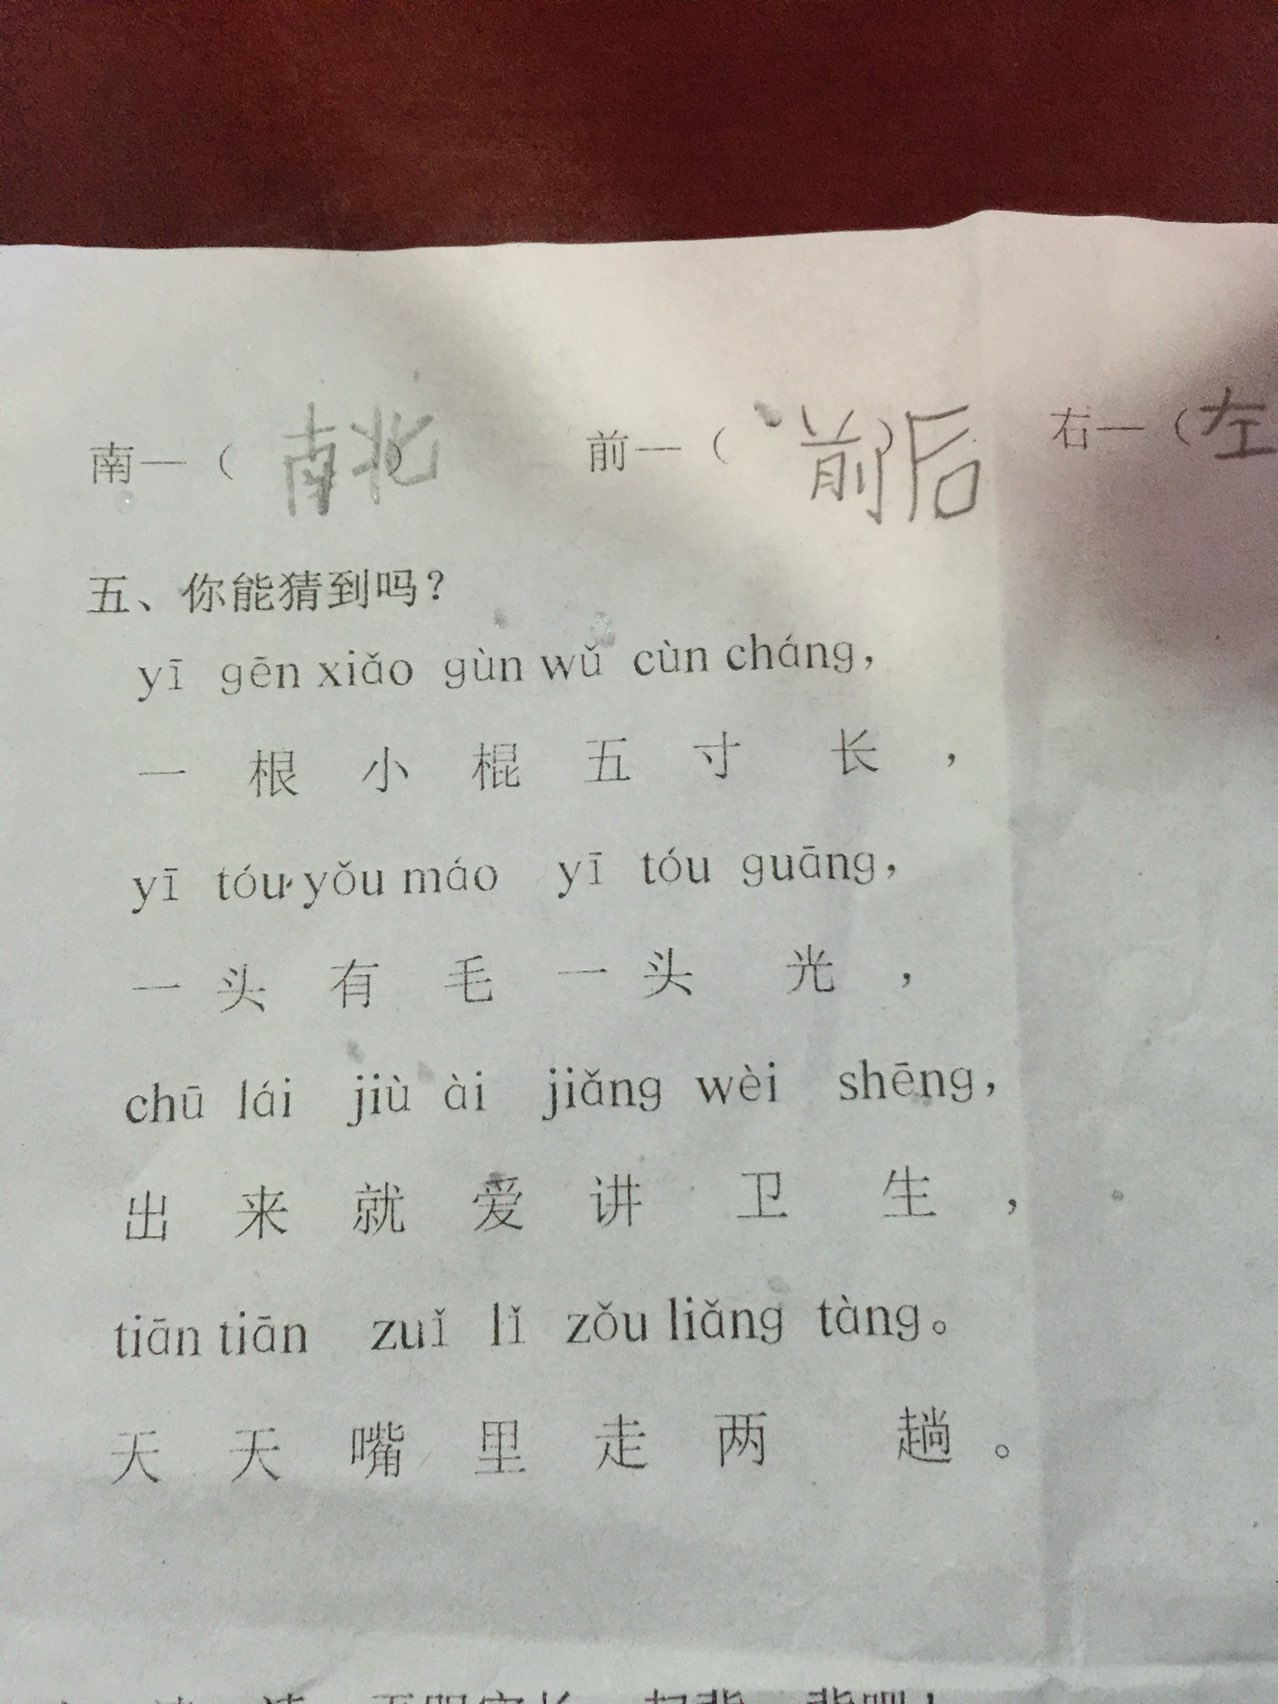 南—（南北） 前—（前后） 右—（左
五、你能猜到吗？
yī gēn xiǎo gùn wǔ cùn cháng，
一 根 小 棍 五 寸 长 ，
yī tóu yǒu máo yī tóu guāng，
一 头 有 毛 一 头 光 ，
chū lái jiù ài jiǎng wèi shēng，
出 来 就 爱 讲 卫 生 ，
tiān tiān zuǐ lǐ zǒu liǎng tàng。
天 天 嘴 里 走 两 趟 。